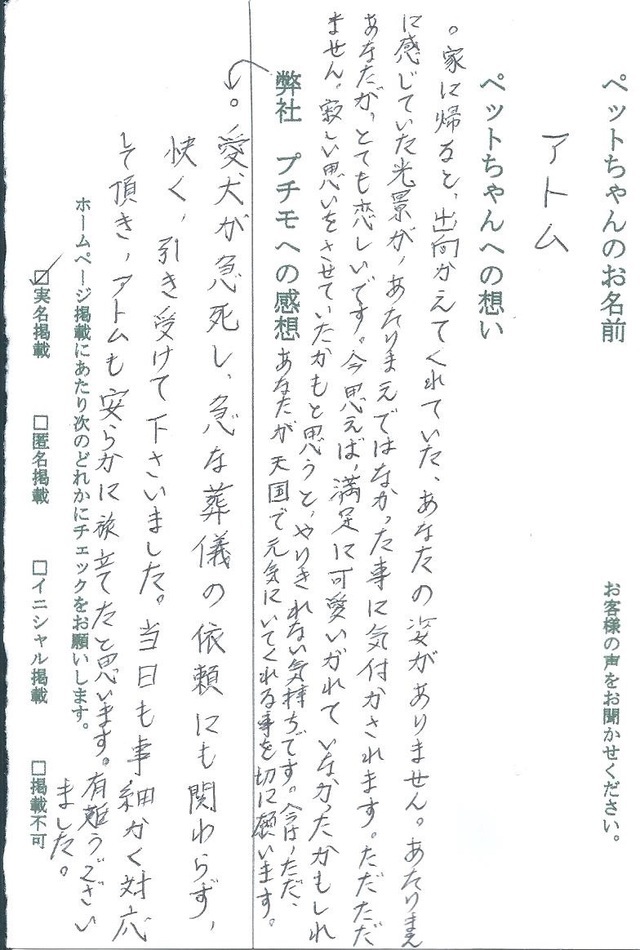 ペットちゃんのお名前
お客様の声をお聞かせください。
アトム
ペットちゃんへの想い
。家に帰ると、出向かえてくれていた、あなたの姿がありません。あたりまえ
に感じていた光景が、あたりまえではなかった事に気付かされます。ただただ
あなたが、とても恋しいです。今思えば、満足に可愛いがれていなかったかもしれ
ません。寂しい思いをさせていたかもと思うと、やりきれない気持ちです。今は、ただ、
あなたが天国で元気にいてくれる事を切に願います。
弊社 プチモへの感想
。愛犬が急死し、急な葬儀の依頼にも関わらず、
快く、引き受けて下さいました。当日も事細かく対応
して頂き、アトムも安らかに旅立てたと思います。有難うござい
ました。
ホームページ掲載にあたり次のどれかにチェックをお願いします。
☑実名掲載 □匿名掲載 □イニシャル掲載 □掲載不可